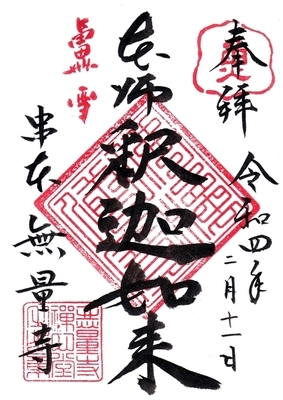 奉拝
令和四年
二月十一日
本師釈迦如来
串本
無量寺